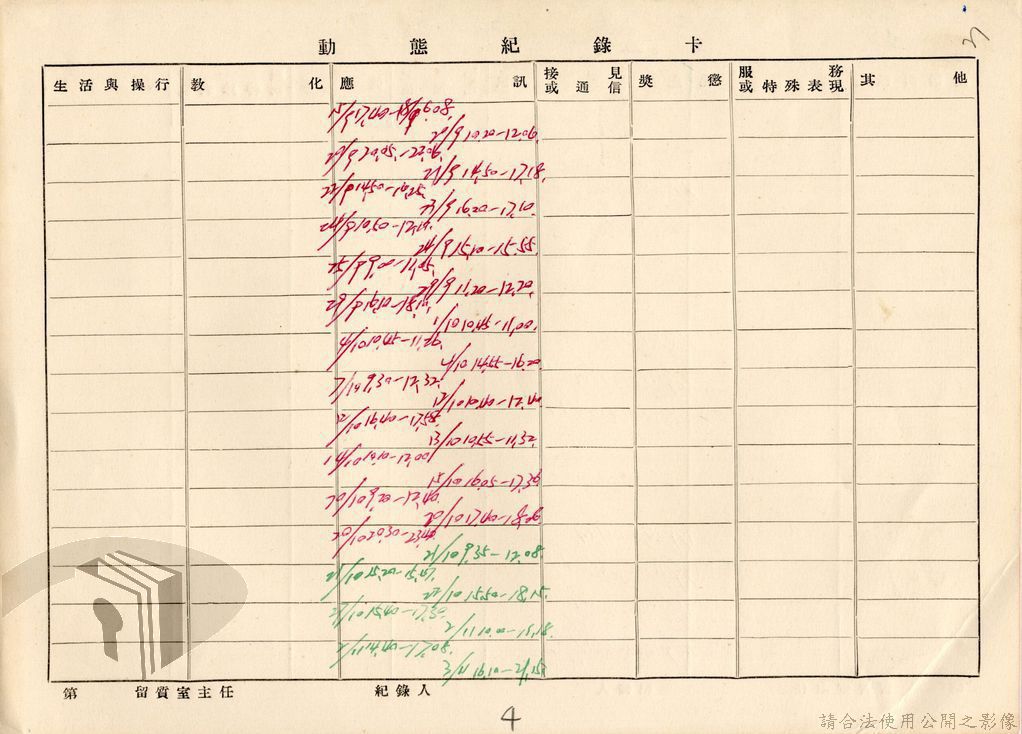 動態紀錄卡
生活與操行 教化 應訊 接見或通信 獎懲 服務或特殊表現 其他
15/9 17,40-18/9 6.08.
20/9 10.20-12.06.
20/9 20.05.-22.06.
21/9 14,50-17,18.
22/9 14,50-16,25.
23/9 16.20-17,10.
24/9 10,50-12,10.
24/9 15,10-15.55.
25/9 9,00-11,05.
29/9 11,20-12,20.
29/9 16,10-18,10.
1/10 10,45-11,00.
4/10 10,45-11,26.
4/10 14,55-16.20
7/10 9,30-12,32.
12/10 10,40-12,40
12/10 16,40-17,58.
13/10 10,55-11,32.
14/10 10,10-12,00
15/10 16,05-17,36.
20/10 9,20-12,40.
20/10 17,40-18,06
20/10 20,30-23,40.
21/10 9,35-12,08.
21/10 15,20-15,47.
22/10 15,50-18,15.
23/10 15,40-17,30.
2/11 10,00-11,18.
2/11 14,40-17,08.
3/11 16,10-21,15
第 留質室主任 紀錄人
4
請合法使用公開之影像